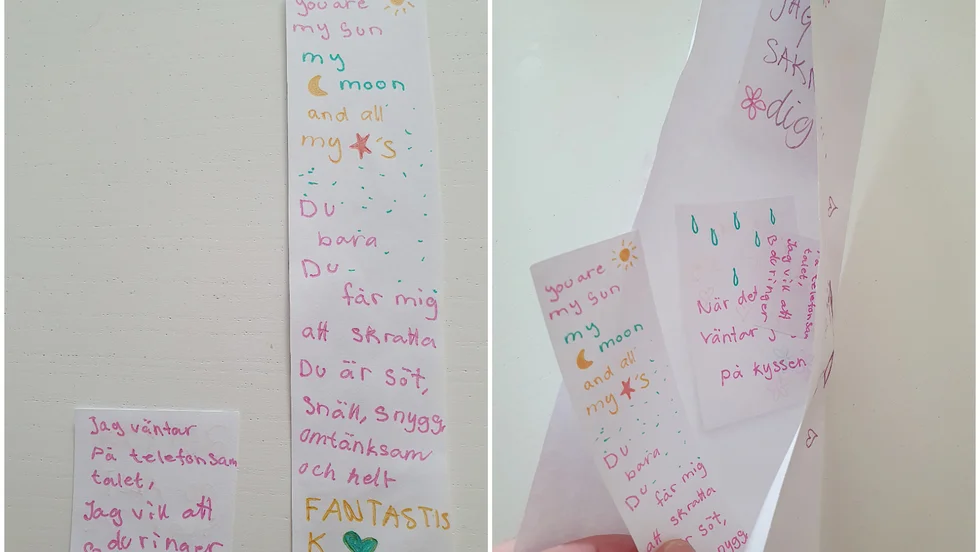 you are
my sun
my
moon
and all
my 's
Du
bara
Du
får mig
att skratta
Du är söt,
Snäll, snygg,
omtänksam
och helt
FANTASTIS
K
Jag väntar
på telefonsam
talet,
Jag vill att
du ringer
JAG
SAKN
dig
telefonsam
talet,
Jag vill att
du ringer
När det
väntar
på kyssen
you are
my sun
my
moon
and all
my 's
Du
bara
Du
får mig
att skratta
är söt,
snygg